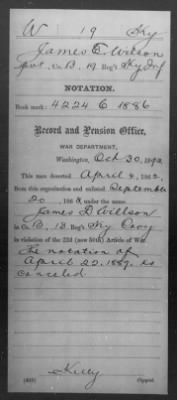 W 19 Ky
James E. Willson
Pvt., Co. B, 19 Reg't Ky Inf
NOTATION.
Book mark: 4224 C 1886
Record and Pension Office,
WAR DEPARTMENT,
Washington, Oct 30, 1892.
This man deserted April 4, 1862.
from this organization and enlisted September
20, 1862, under the name
James D. Willson
in Co. B, 12 Reg't Ky Cavy
in violation of the 22d (now 50th) Article of War.
The notation of
April 22, 1889, is
canceled
Kelly
Copyist.